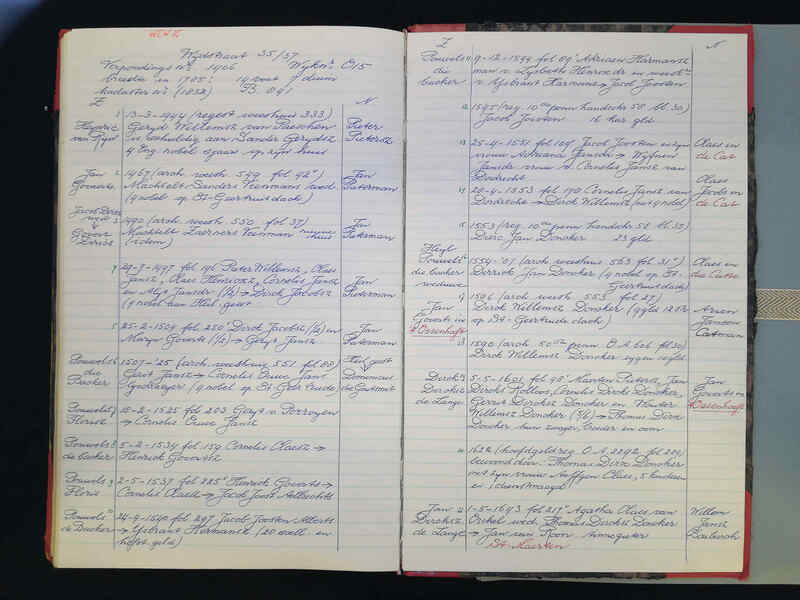 Wydstraat 35/37
Verpondings nr. 1966 Wijk nr. O 15
breedte in 1785: 19 voet 7 duim
kadaster nr. (1832) B. 091
Z N
1 13-3-1494 (regest weeshuis 333)
Henric van Rijn
Geryd Willemsz van
Pieter Pietersz
is schuldig aan Sander Gerydsz
4 Eng. nobel sjaars op zijn huis
Jan Govertsz
2 1467 (arch. weesh 549 fol 42v)
Machtelt Sanders Veermans wed.
(9 nobel op St-Geertruidach)
Jan Peterman
3 1490 (arch weesh 550 fol 37)
Machtelt Laerners Veerman
(idem)
Jan Peterman
4 29-7-1497 fol 191 Pieter Willemsz, Claes
Jansz, Claes Henricxz, Cornelis Jansz
en Alyt Jansdr (1/2) → Dirck Jacobsz
(9 nobel aan Heil. geest
Jan Pieterman
5 25-2-1504 fol 250 Dirck Jacobsz (1/2) en
Marye Goverts (1/2) → Geryt Jansz
Jan Peterman
Pouwels die Backer
6 1507-'25 (arch. weeshuis 551 fol 80)
Gerit Jansz → Cornelis Ouwe Jan
(9 nobel op St-Geertruide)
Heil. geest
Pouwels Florisz
7 10-2-1525 fol 203 Geryt v. Perroyen
→ Cornelis Ouwe Jansz
Pouwels de backer
8 5-2-1534 fol 159 Cornelis Claesz →
Henrick Govertsz
Pouwels Floris
9 2-5-1537 fol 225v Henrick Goverts →
Cornelis Claesz → Jacob Joost Aelbrechts
Pouwels de Backer
10 24-9-1540 fol 297 Jacob Joosten Alberts
→ Ysebrant Hermansz (20 ell. en
hofst. geld)
Z N
Pouwels die backer
11 9-12-1544 fol 69v Adriaen Hermansz
man v. Lysbeth Henrocdr
v. Ysbrant Harmans → Jacob Joosten
12 1545 (reg. 10de penn handschr 50 bl. 30)
Jacob Joosten 16 kar. gld
13 25-4-1551 fol 109 Jacob Joosten en zijn
vrouw Adriana Jansdr → Wijven
Jansdr vrouw v. Cornelis Jansz van
Dordrecht
Claes en de Cat
14 29-4-1553 fol 170 Cornelis Jansz van
Dordrecht → Dirck Willemsz (met 9 nobel)
Claes Jacobs en de Cat
15 1553 (reg. 10de penn handschr 58 bl. 30)
Dirc Jan Doncker 23 gld
Heyl.
Pouwels die backer weduwe
16 1554-'67 (arch. weeshuis 553 fol 31v)
Derrick Jan Doncker (9 nobel op St-
Geertruidach)
Claes en die Catte
Jan Goverts in 't Ossenhoft
17 1586 (arch. weesh 553 fol 27)
Dirck Willemsz Doncker
op St-Geertruide dach)
Arien Jansen Catman
18 1590 (arch 50ste penn. O.A. 606 fol 30)
Dirck Willemsz Doncker eygen
Dirck Dircksz de Lange
19 5-5-1601 fol 90v Maerten Pieters, Jan
Dircksz Potloos, Cornelis Dircks Doncker,
Gerrit Dircksz Doncker en Wouter
Willemsz Doncker (5/6) → Thomas Dirx
Doncker hun zwager, broeder en oom
Jan Goverts in 't Ossenhooft
20 1622 (hoofdgeldreg. O.A. 2292 fol 209)
bewoond door: Thomas Dirx Doncker
met zijn vrouw Aeffgen Claes, 5 kinderen
en 1 dienstmaagd
Jan Dircksz de Lange
21 1-5-1643 fol 217v Agatha Claes van
Crekel wed. Thomas Dircksz Doncker
→ Jan van Roon
St. Maerten
Willem Jansz